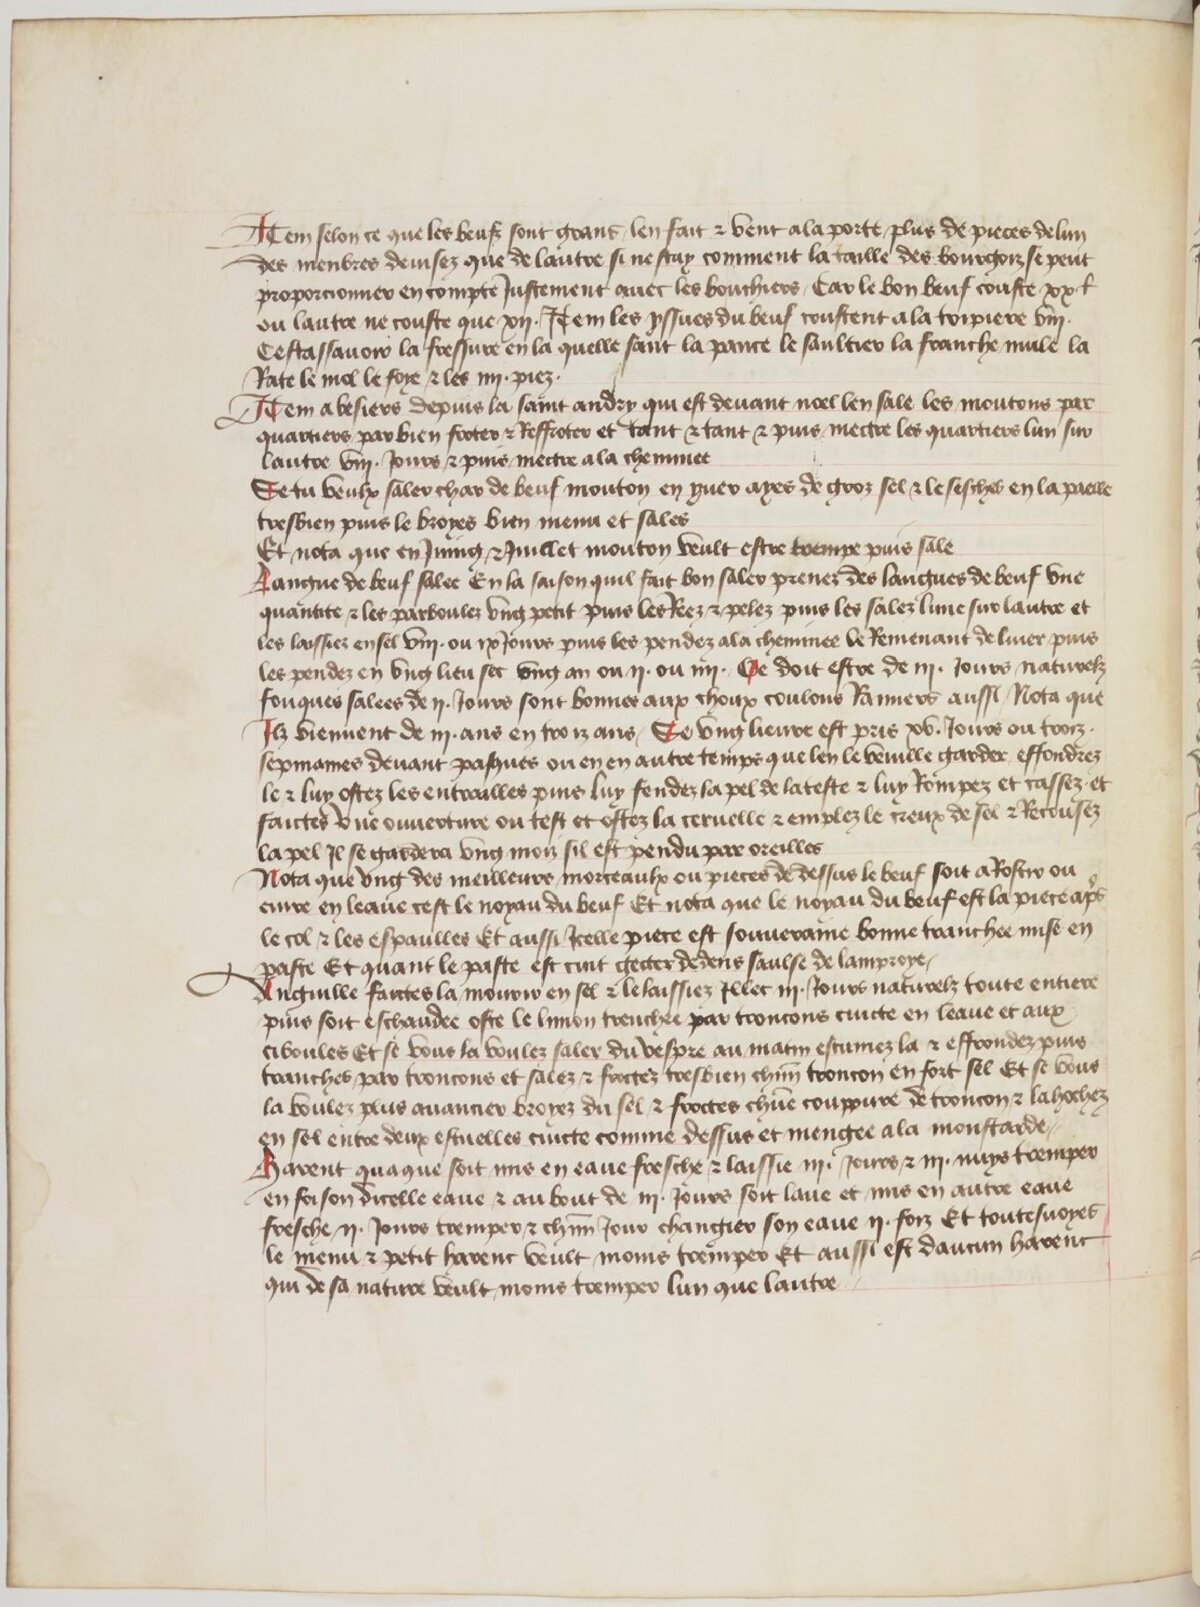 Item selon ce que les beufz sont grans len fait ⁊ vent a la porte plus de pieces de lun
des menbres devisez que de lautre si ne scay comment la taille des bourgoiz se peut
proporcionner en compte Justement avec les bouchiers Car le bon beuf couste xx f
ou lautre ne couste que xii. Item les yssues du beuf coustent a la tripiere viii.
Cestassavoir la fressure en la quelle sont la pance le saultier la franche mule la
Rate le mol le foye ⁊ les iiii. piez.
Item a besiers depuis la saint andry qui est devant noel len sale les moutons par
quartiers par bien froter ⁊ Reffroter et tant ⁊ tant ⁊ puis mectre les quartiers lun sur
lautre viii. Jours ⁊ puis mectre a la cheminee
Se tu veulx saler char de beuf mouton en yver ayes de groz sel ⁊ le seiches en la paelle
tresbien puis le broyes bien menu et sales
Et nota que en Juing ⁊ Juillet mouton veult estre trempe puis sale
Langue de beuf salee En la saison quil fait bon saler prenez des langues de beuf une
quantite ⁊ les parboulez ung petit puis les Reez ⁊ pelez puis les salez lune sur lautre et
les laissiez en sel viii. ou ix Jours puis les pendez a la cheminee le Remenant de liver puis
les pendez en ung lieu sec ung an ou ii. ou iiii. Oe doit estre de iii. Jours naturelz
fouques salees de ii. Jours sont bonnes aux choux coulons Ramiers aussi Nota que
Ilz viennent de iii. ans en troiz ans Se ung lievre est pris xv. Jours ou troiz
sepmaines devant pasques ou en en autre temps que len le veuille garder effondrez
le ⁊ luy ostez les entrailles puis luy fendez la pel de la teste ⁊ luy Rompez et cassez et
faictes une ouverture ou test et ostez la cervelle ⁊ emplez le creux de sel ⁊ Recousez
la pel Il se gardera ung moiz sil est pendu par oreilles
Nota que ung des meilleurs morceaulx ou pieces de dessus le beuf soit a Rostir ou
cuire en leaue cest le noyau du beuf Et nota que le noyau du beuf est la piece aps
le col ⁊ les espaulles Et aussi Icelle piece est souveraine bonne tranchee mise en
paste Et quant le paste est cuit gecter dedens saulse de lamproye
Anguille faictes la mourir en sel ⁊ le laissiez Illec iii. Jours naturelz toute entiere
puis soit eschaudee oste le limon trenchee par troncons cuicte en leaue et aux
ciboules Et se vous la voulez saler du vespre au matin escumez la ⁊ effondrez puis
tranches par troncons et salez ⁊ froctez tresbien chun troncon en fort sel Et se vous
la voulez plus avancier broyez du sel ⁊ froctes chune couppure de troncon ⁊ la hochez
en sel entre deux escuelles cuicte comme dessus et mengee a la moustarde
Harent quaque soit mis en eaue fresche ⁊ laissie iii. Jours ⁊ iii. nuys tremper
en foison dicelle eaue ⁊ au bout de iii. Jours soit lave et mis en autre eaue
fresche ii. Jours tremper ⁊ chun Jour changier son eaue ii. foiz Et toutesvoyes
le menu ⁊ petit harenc veult moins tremper Et aussi est daucun harenc
qui de sa nature veult moins tremper lun que lautre